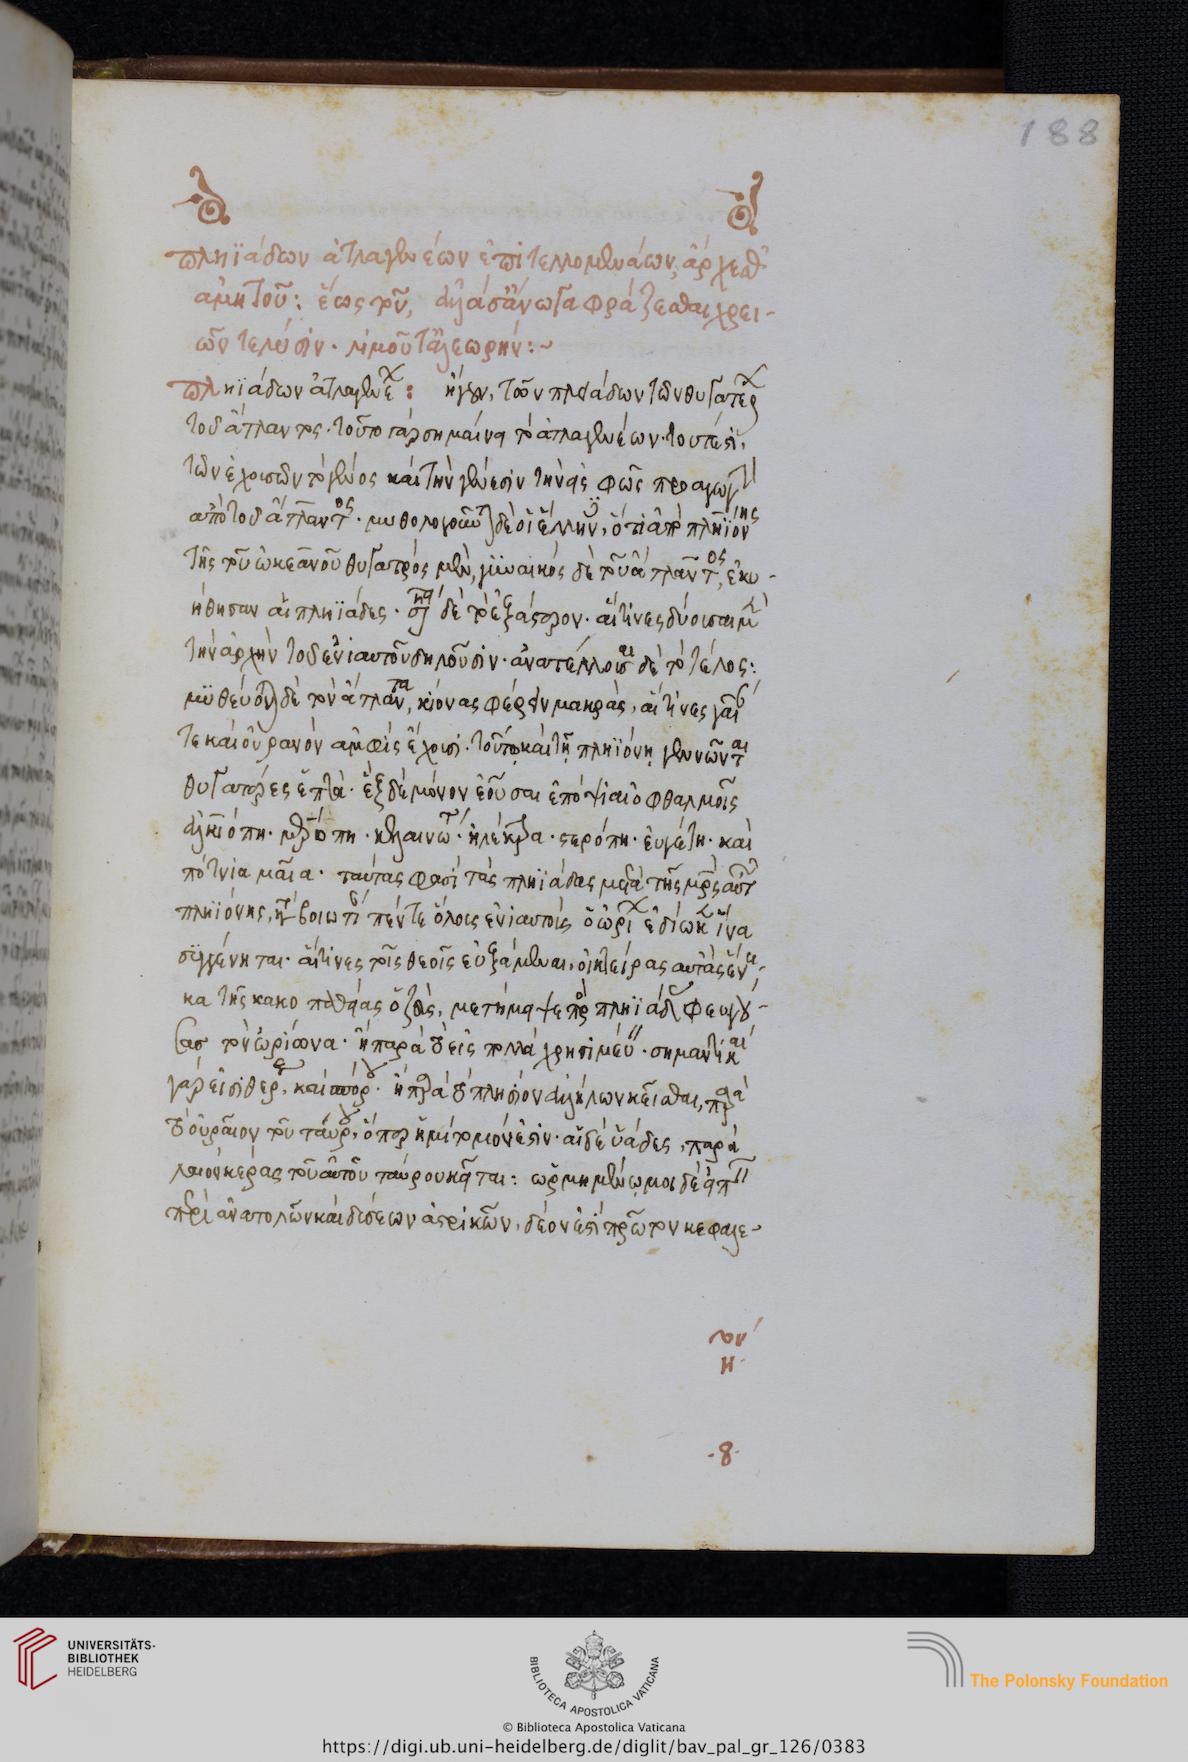 188
πληϊάδων ἀτλαγενέων ἐπιτελλομενάων, ἄρχεσθ'
ἀμητοῦ: ἕως τοῦ,
τελέσιν
πληϊάδων ἀτλαγενε: ἤγουν, τῶν πλειάδων τῶν θυγατέρ
τοῦ ἄτλαντος. τοῦτο γὰρ σημαίνει τὸ ἀτλαγενέων. τουτέστι,
τῶν ἐχουσῶν τὸ γένος καὶ τὴν γένεσιν τὴν εἰς φῶς
ἀπὸ τοῦ ἄτλαντος. δὲ οἱ ἕλλην, ὅτι ἀπὸ πληϊόνης
τῆς τοῦ ὠκεανοῦ θυγατρός μὲν, γυναικός δὲ τοῦ ἄτλαντος, ἐκυ-
ήθησαν αἱ πληϊάδες. δὲ τὸ ἑξάστρον. αἵτινες δύουσαι μ
τὴν ἀρχὴν τοῦ ἐνιαυτοῦ δηλοῦσιν. ἀνατέλλουσαι δὲ τὸ τέλος:
δὲ τὸν ἄτλαντα, κίονας φέρειν μακράς, αἵτινες γαῖαν
τε καὶ οὐρανόν ἀμφὶς ἔχουσι. τούτῳ καὶ τῇ πληϊόνῃ γεννῶνται
θυγατέρες ἑπτά. ἓξ δὲ μόνον ἐοῦσαι ἐπόψιαι ὀφθαλμοῖς
ἀλκιόπη. μερόπη. κελαινώ τ'. ἠλέκτρα. στερόπη. ταϋγέτη. καὶ
πότνια μαῖα. ταύτας φασὶ τὰς πληϊάδας μετὰ τῆς μρς αὐτ
πληϊόνης, πέντε ὅλοις ἐνιαυτοῖς ὁ ὠρίων ἐδίωκεν ἵνα
συγγένηται. αἵτινες τοῖς θεοῖς εὐξάμεναι, οἰκτείρας αὐτὰς ἕνε-
κα τῆς κακοπαθείας ὁ ζεὺς, πληϊάδ φευγού-
σας τὸν ὠρίωνα. ἢ παρὰ τὸ εἰς πολλὰ χρησιμεύειν. σημαντικαί
γάρ εἰσι θέρους, καὶ ἀρότου. ἢ παρὰ τὸ πλησίον ἀλλήλων κεῖσθαι, παρὰ
τὸ οὐραῖον τοῦ ταύρου, ὅπερ ἡμίτομόν ἐστιν. αἱ δὲ ὑάδες, παρὰ
λαιὸν κέρας τοῦ αὐτοῦ ταύρου κεῖται:
περὶ ἀνατολῶν καὶ δύσεων ἀστρικῶν, δέον ἐστὶ πρῶτον κεφαλε-
UNIVERSITÄTS-
BIBLIOTHEK
HEIDELBERG
BIBLIOTECA APOSTOLICA VATICANA
The Polonsky Foundation
© Biblioteca Apostolica Vaticana
https://digi.ub.uni-heidelberg.de/diglit/bav_pal_gr_126/0383